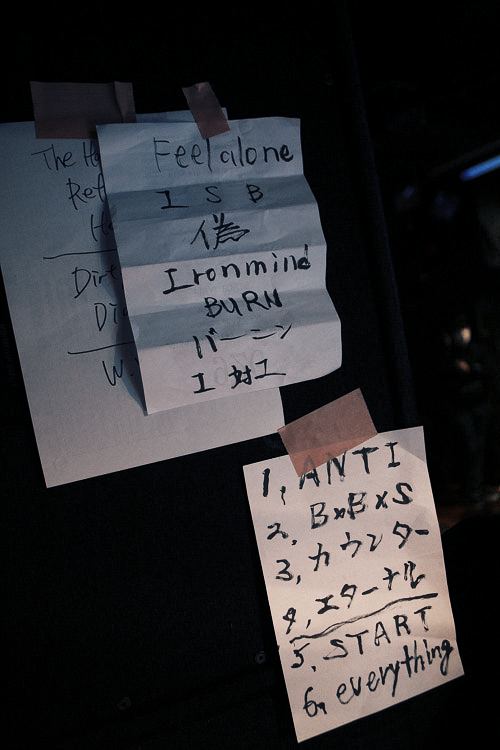 The
Feel alone
I S B
偽
Ironmind
BURN
バーニン
I 対 I
1, ANTI
2, B×B×S
3, カウンター
4, エターナル
5, START
6, everything